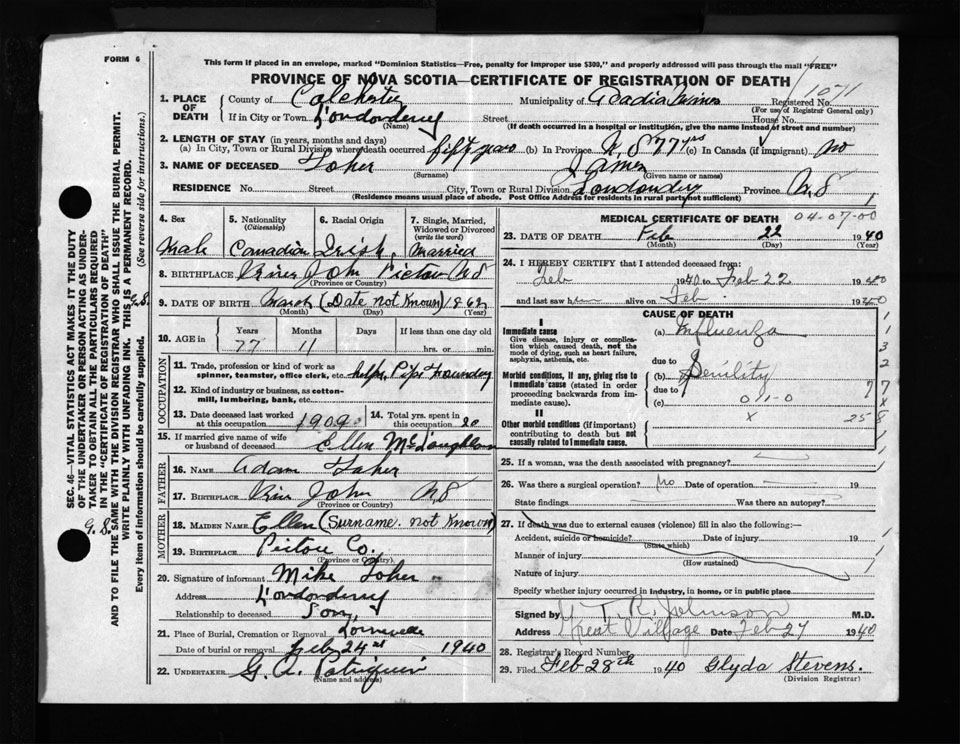 FORM 6
This form if placed in an envelope, marked "Dominion Statistics—Free, penalty for improper use $300," and properly addressed will pass through the mail "FREE"
PROVINCE OF NOVA SCOTIA—CERTIFICATE OF REGISTRATION OF DEATH
1071
1. PLACE OF DEATH
County of Colchester Municipality of Acadia Mines Registered No.
(For use of Registrar General only)
If in City or Town Londonderry Street House No.
(Name) (If death occurred in a hospital or institution, give the name instead of street and number)
2. LENGTH OF STAY (in years, months and days)
(a) In City, Town or Rural Division where death occurred fifty years (b) In Province N.S. 77 yrs (c) In Canada (if immigrant) no
3. NAME OF DECEASED Foher James
(Surname) (Given name or names)
RESIDENCE No. Street City, Town or Rural Division Londonderry Province N.S
(Residence means usual place of abode. Post Office Address for residents in rural parts not sufficient)
4. Sex 5. Nationality (Citizenship) 6. Racial Origin 7. Single, Married, Widowed or Divorced (write the word)
Male Canadian Irish Married
8. BIRTHPLACE River John Pictou N.S
(Province or Country)
9. DATE OF BIRTH March (Date not Known) 1862
(Month) (Day) (Year)
10. AGE in Years Months Days If less than one day old
77 11 hrs. or min.
OCCUPATION
11. Trade, profession or kind of work as spinner, teamster, office clerk, etc. helper, Pipe Foundry
12. Kind of industry or business, as cotton-mill, lumbering, bank, etc.
13. Date deceased last worked at this occupation 1909 14. Total yrs. spent in this occupation 20
15. If married give name of wife or husband of deceased Ellen McLaughlan
FATHER
16. NAME Adam Foher
17. BIRTHPLACE River John N.S
(Province or Country)
MOTHER
18. MAIDEN NAME Ellen (Surname not Known)
19. BIRTHPLACE Pictou Co.
(Province or Country)
20. Signature of informant Mike Foher
Address Londonderry
Relationship to deceased Son
21. Place of Burial, Cremation or Removal
Date of burial or removal Feb 24 1940
22. UNDERTAKER G. A. Patriquin
(Name and address)
MEDICAL CERTIFICATE OF DEATH 04-07-00
23. DATE OF DEATH Feb 22 1940
(Month) (Day) (Year)
24. I HEREBY CERTIFY that I attended deceased from:
Feb 1940 to Feb 22 1940
and last saw him alive on Feb 1940
CAUSE OF DEATH
I
Immediate cause
Give disease, injury or complication which caused death, not the mode of dying, such as heart failure, asphyxia, asthenia, etc.
(a) Influenza
due to
Morbid conditions, if any, giving rise to immediate cause (stated in order proceeding backwards from immediate cause).
(b) Senility
due to
(c) 011-0
II
Other morbid conditions (if important) contributing to death but not causally related to immediate cause.
x
25. If a woman, was the death associated with pregnancy?
26. Was there a surgical operation? No Date of operation 19
State findings Was there an autopsy?
27. If death was due to external causes (violence) fill in also the following:—
Accident, suicide or homicide? Date of injury 19
(State which)
Manner of injury
(How sustained)
Nature of injury
Specify whether injury occurred in industry, in home, or in public place
Signed by T. R. Johnson M.D.
Address Great Village Date Feb 27 1940
28. Registrar's Record Number
29. Filed Feb 28th 1940 Glyda Stevens.
(Division Registrar)
SEC. 46—VITAL STATISTICS ACT MAKES IT THE DUTY OF THE UNDERTAKER OR PERSON ACTING AS UNDERTAKER TO OBTAIN ALL THE PARTICULARS REQUIRED IN THE "CERTIFICATE OF REGISTRATION OF DEATH"
AND TO FILE THE SAME WITH THE DIVISION REGISTRAR WHO SHALL ISSUE THE BURIAL PERMIT.
WRITE PLAINLY WITH UNFADING INK. THIS IS A PERMANENT RECORD.
Every item of information should be carefully supplied. (See reverse side for instructions.)
G.S.